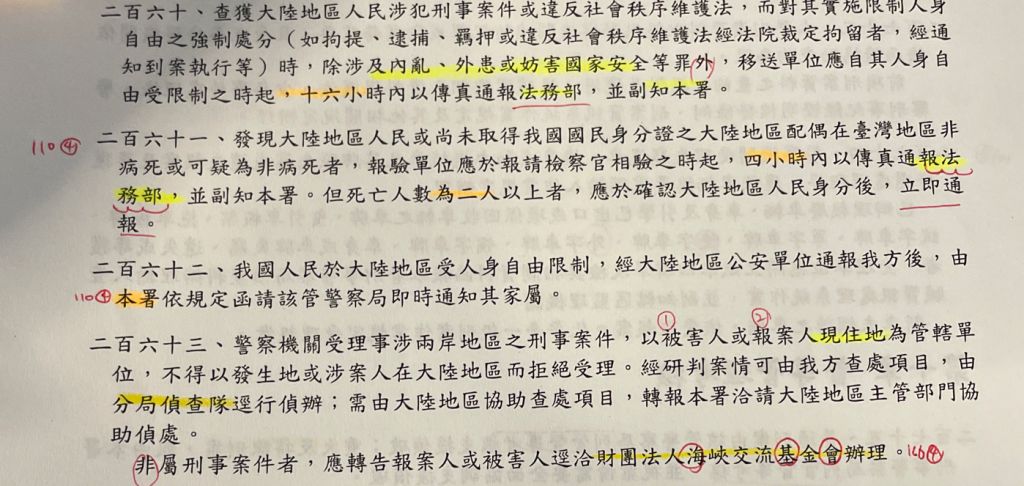 二百六十、查獲大陸地區人民涉犯刑事案件或違反社會秩序維護法，而對其實施限制人身
自由之強制處分（如拘提、逮捕、羈押或違反社會秩序維護法經法院裁定拘留者，經通
知到案執行等）時，除涉及內亂、外患或妨害國家安全等罪外，移送單位應自其人身自
由受限制之時起，十六小時內以傳真通報法務部，並副知本署。
110④ 二百六十一、發現大陸地區人民或尚未取得我國國民身分證之大陸地區配偶在臺灣地區非
病死或可疑為非病死者，報驗單位應於報請檢察官相驗之時起，四小時內以傳真通報法
務部，並副知本署。但死亡人數為二人以上者，應於確認大陸地區人民身分後，立即通
報。
二百六十二、我國人民於大陸地區受人身自由限制，經大陸地區公安單位通報我方後，由
110④ 本署依規定函請該管警察局即時通知其家屬。
① ②
二百六十三、警察機關受理事涉兩岸地區之刑事案件，以被害人或報案人現住地為管轄單
位，不得以發生地或涉案人在大陸地區而拒絕受理。經研判案情可由我方查處項目，由
分局偵查隊逕行偵辦；需由大陸地區協助查處項目，轉報本署洽請大陸地區主管部門協
助偵處。
非屬刑事案件者，應轉告報案人或被害人逕洽財團法人海峽交流基金會辦理。